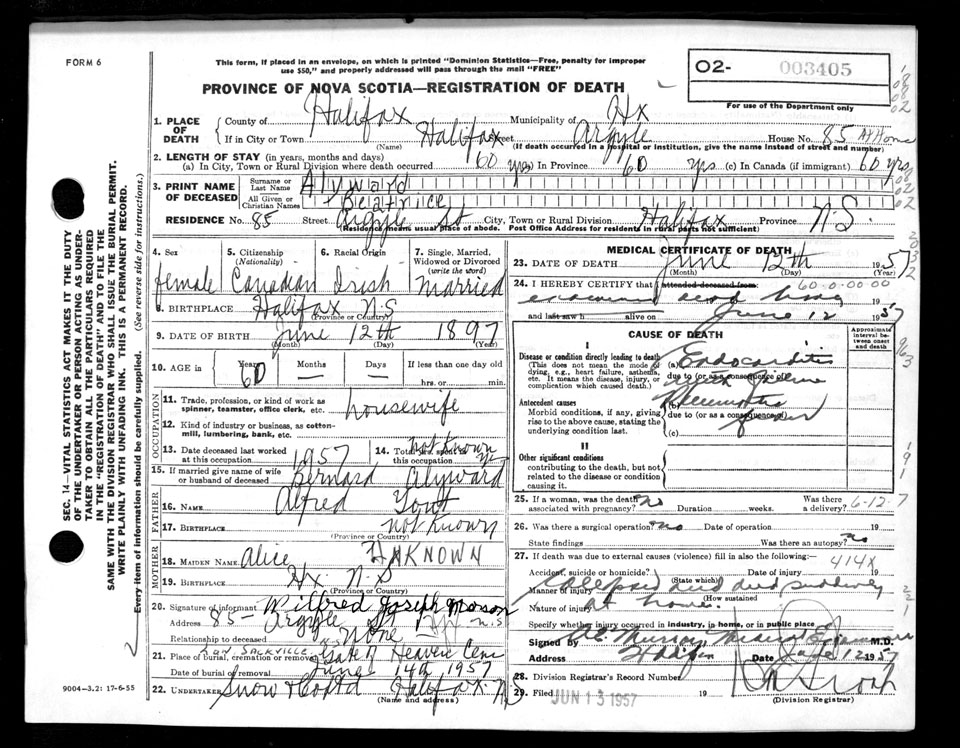 FORM 6
This form, if placed in an envelope, on which is printed "Dominion Statistics—Free, penalty for improper
use $50," and properly addressed will pass through the mail "FREE"
O2- 003405
For use of the Department only
PROVINCE OF NOVA SCOTIA—REGISTRATION OF DEATH
1. PLACE OF DEATH
County of Halifax Municipality of Hx
If in City or Town Halifax Street Argyle House No. 85 At Home
(Name) (If death occurred in a hospital or institution, give the name instead of street and number)
2. LENGTH OF STAY (in years, months and days)
(a) In City, Town or Rural Division where death occurred 60 yrs (b) In Province 60 yrs (c) In Canada (if immigrant) 60 yrs
3. PRINT NAME OF DECEASED
Surname or Last Name Alyward
All Given or Christian Names Beatrice
RESIDENCE No. 85 Street Argyle St City, Town or Rural Division Halifax Province N.S.
(Residence means usual place of abode. Post Office Address for residents in rural parts not sufficient)
4. Sex female
5. Citizenship (Nationality) Canadian
6. Racial Origin Irish
7. Single, Married, Widowed or Divorced (write the word) Married
8. BIRTHPLACE Halifax N.S
(Province or Country)
9. DATE OF BIRTH June 12th 1897
(Month) (Day) (Year)
10. AGE in Years 60 Months — Days — If less than one day old
hrs. or min.
OCCUPATION
11. Trade, profession, or kind of work as spinner, teamster, office clerk, etc. housewife
12. Kind of industry or business, as cotton-mill, lumbering, bank, etc.
13. Date deceased last worked at this occupation 1957
14. Total yrs. spent in this occupation not Known
15. If married give name of wife or husband of deceased Bernard Alyward
FATHER
16. NAME Alfred
17. BIRTHPLACE not Known
(Province or Country)
MOTHER
18. MAIDEN NAME Alice UNKNOWN
19. BIRTHPLACE Hx N.S
(Province or Country)
20. Signature of informant Wilfred Joseph Mason
Address 85 - Argyle St Hx N.S
Relationship to deceased None
21. Place of burial, cremation or removal Sackville Gate of Heaven Cem
Date of burial or removal June 14th 1957
22. UNDERTAKER Snow & Co Ltd Halifax N.S
(Name and address)
MEDICAL CERTIFICATE OF DEATH
23. DATE OF DEATH June 12th 1957
(Month) (Day) (Year)
24. I HEREBY CERTIFY that I attended deceased from 60-0-00-00
19
and last saw h alive on June 12 1957
CAUSE OF DEATH
Approximate interval between onset and death
I
Disease or condition directly leading to death
(This does not mean the mode of dying, e.g., heart failure, asthenia, etc. It means the disease, injury, or complication which caused death.)
(a) Endocarditis
due to (or as a consequence of)
Antecedent causes
Morbid conditions, if any, giving rise to the above cause, stating the underlying condition last.
(b) Rheumatic
due to (or as a consequence of)
fever
(c)
II
Other significant conditions
contributing to the death, but not related to the disease or condition causing it.
25. If a woman, was the death associated with pregnancy? No Duration weeks. Was there a delivery? 6-12-7
26. Was there a surgical operation? No Date of operation 19
State findings Was there an autopsy? No
27. If death was due to external causes (violence) fill in also the following:
414X
Accident, suicide or homicide? Date of injury 19
(State which)
Manner of injury Collapsed and died suddenly
(How sustained)
Nature of injury at home.
Specify whether injury occurred in industry, in home, or in public place
Signed by Murray Medical Examiner M.D.
Address Halifax Date June 12 1957
28. Division Registrar's Record Number
29. Filed JUN 13 1957 19
(Division Registrar)
9004—3.2: 17-6-55
SEC. 14—VITAL STATISTICS ACT MAKES IT THE DUTY
OF THE UNDERTAKER OR PERSON ACTING AS UNDER-
TAKER TO OBTAIN ALL THE PARTICULARS REQUIRED
IN THE "REGISTRATION OF DEATH" AND TO FILE THE
SAME WITH THE DIVISION REGISTRAR WHO SHALL ISSUE THE BURIAL PERMIT.
WRITE PLAINLY WITH UNFADING INK. THIS IS A PERMANENT RECORD.
Every item of information should be carefully supplied. (See reverse side for instructions.)